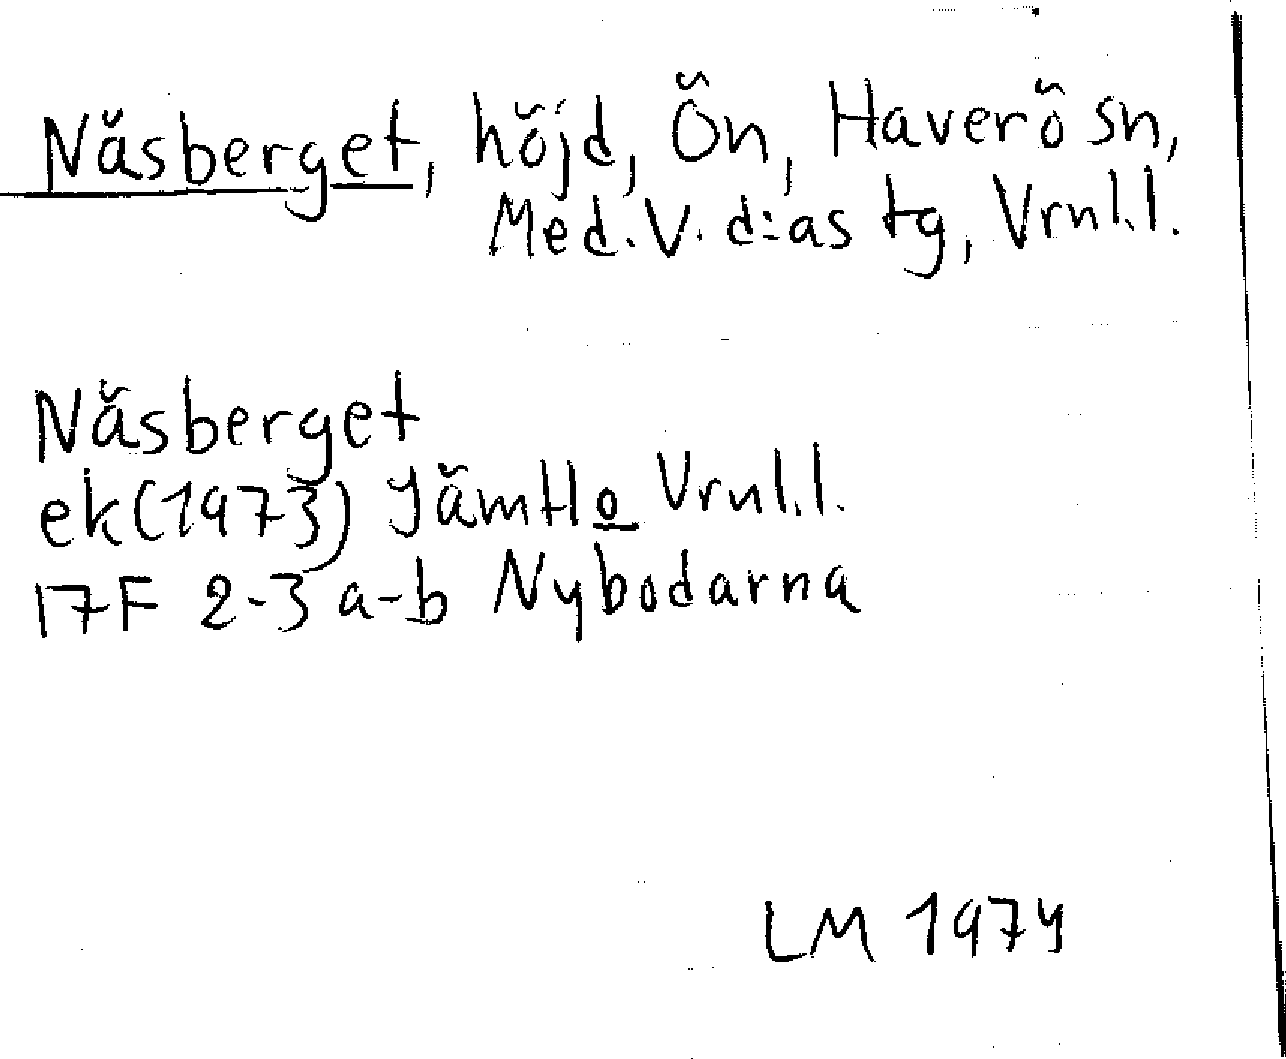 Näsberget, höjd, Ön, Haverö sn,
Med. V. d:as tg, Vrnl.l.
Näsberget
ek(1973) Jämtl o Vrnl.l.
17F 2-3 a-b Nybodarna
LM 1974